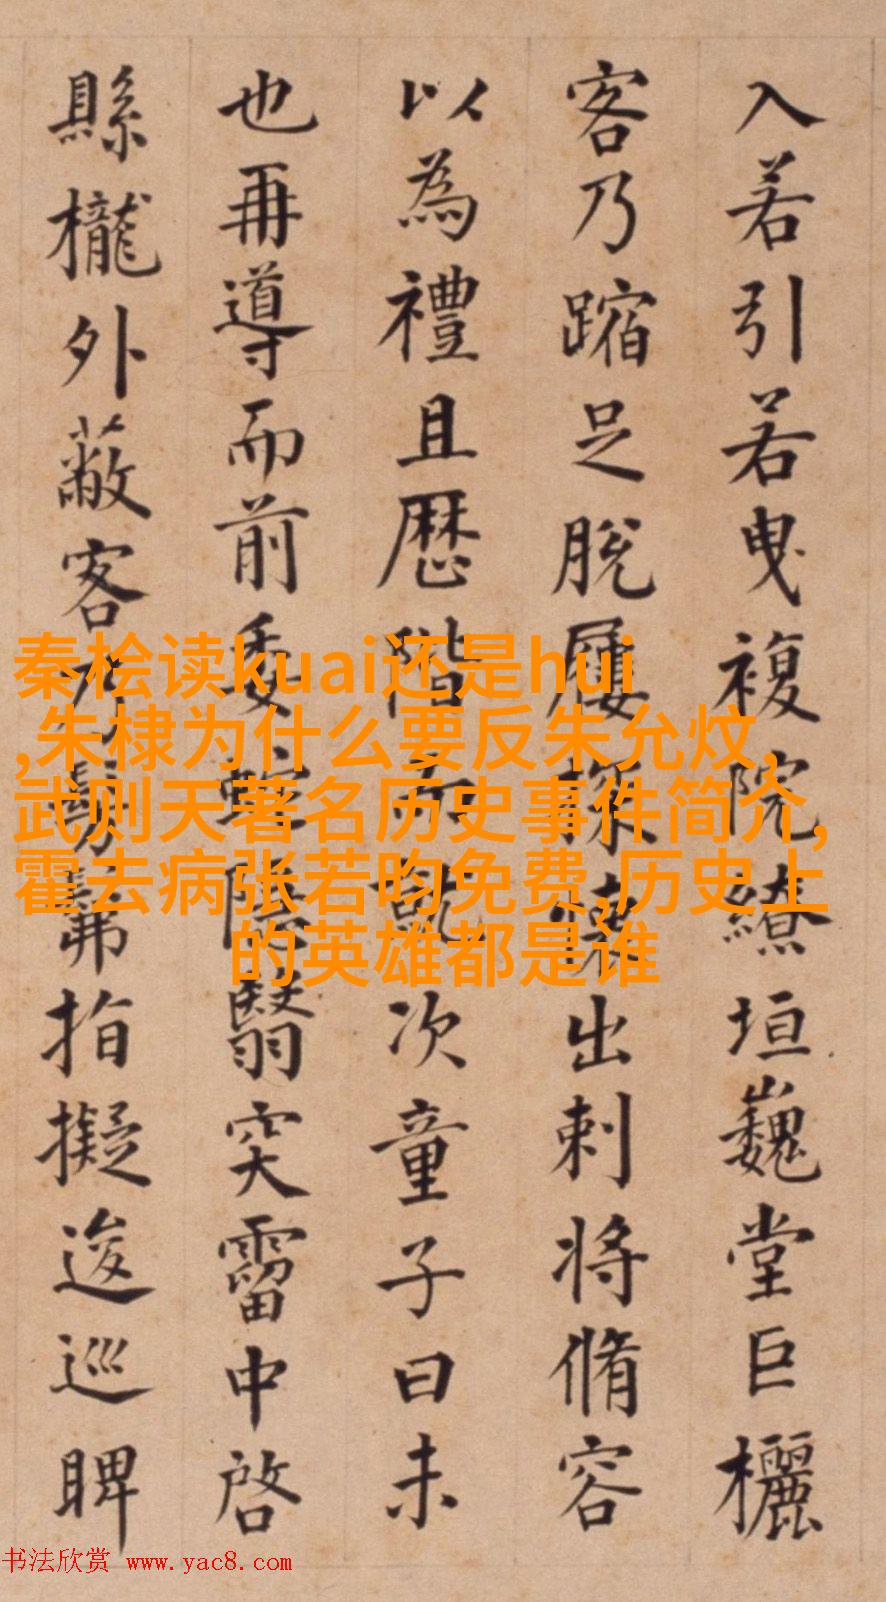 入若引若曳複院繚垣巍堂巨欐
客乃蹜足脫屨探懷出刺將脩容
以為禮且歷階而就次童子曰未
也再導而前委蛇陰翳突霤中啓
縣櫳外蔽客乃髣髴指擬逡巡睥
秦桧读kuai还是hui
,朱棣为什么要反朱允炆,
武则天著名历史事件简介,
霍去病张若昀免费,历史上
的英雄都是谁
书法欣赏 www.yac8.com